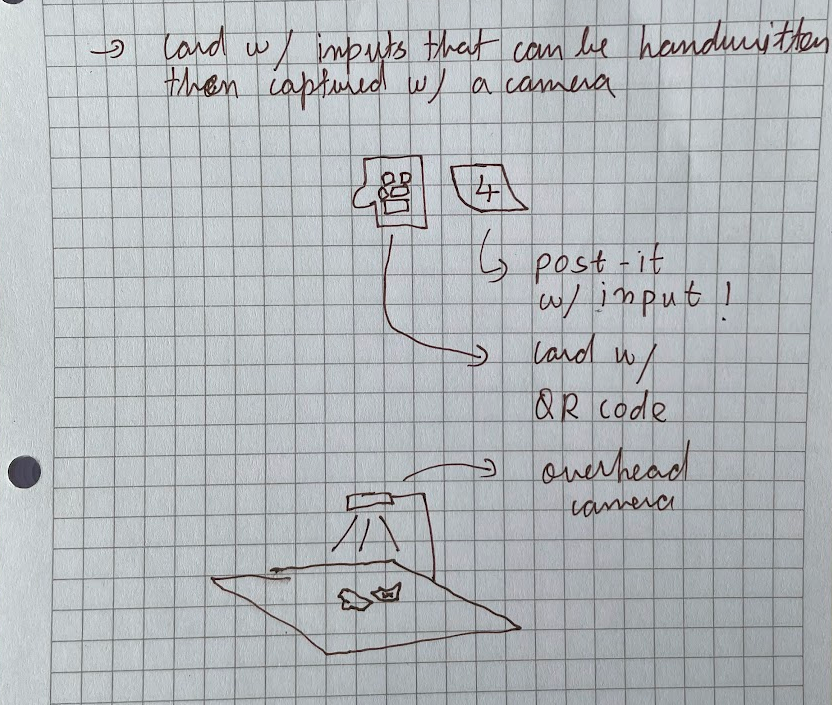 → Card w/ inputs that can be handwritten
then captured w/ a camera
4
post-it
w/ input!
Card w/
QR code
overhead
camera